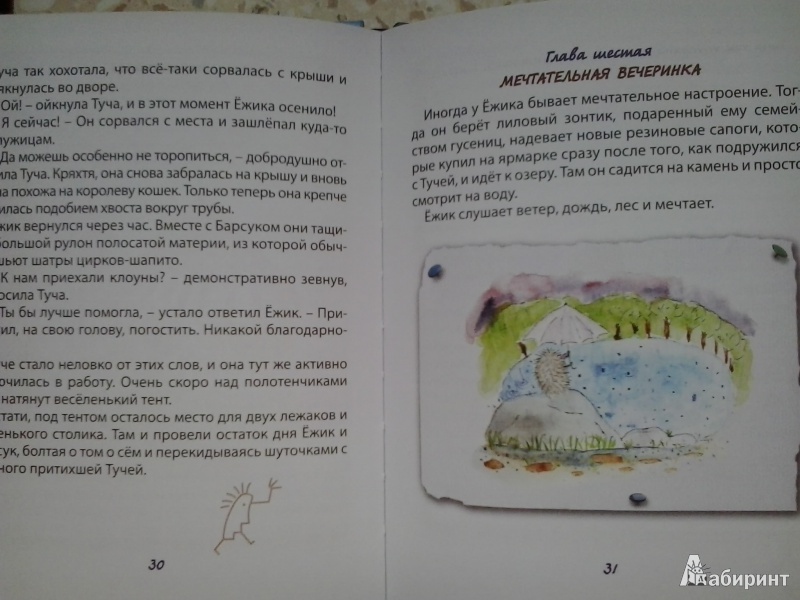 уча так хохотала, что всё-таки сорвалась с крыши и
якнулась во дворе.
Ой! – ойкнула Туча, и в этот момент Ёжика осенило!
Я сейчас! – Он сорвался с места и зашлёпал куда-то
лужицам.
Да можешь особенно не торопиться, – добродушно от-
ила Туча. Кряхтя, она снова забралась на крышу и вновь
ла похожа на королеву кошек. Только теперь она крепче
илась подобием хвоста вокруг трубы.
жик вернулся через час. Вместе с Барсуком они тащи-
большой рулон полосатой материи, из которой обыч-
шьют шатры цирков-шапито.
К нам приехали клоуны? – демонстративно зевнув,
осила Туча.
Ты бы лучше помогла, – устало ответил Ёжик. – При-
ил, на свою голову, погостить. Никакой благодарно-
че стало неловко от этих слов, и она тут же активно
ючилась в работу. Очень скоро над полотенчиками
натянут весёленький тент.
тати, под тентом осталось место для двух лежаков и
енького столика. Там и провели остаток дня Ёжик и
сук, болтая о том о сём и перекидываясь шуточками с
ного притихшей Тучей.
30
Глава шестая
МЕЧТАТЕЛЬНАЯ ВЕЧЕРИНКА
Иногда у Ёжика бывает мечтательное настроение. Тог-
да он берёт лиловый зонтик, подаренный ему семей-
ством гусениц, надевает новые резиновые сапоги, кото-
рые купил на ярмарке сразу после того, как подружился
с Тучей, и идёт к озеру. Там он садится на камень и просто
смотрит на воду.
Ёжик слушает ветер, дождь, лес и мечтает.
31
Лабиринт